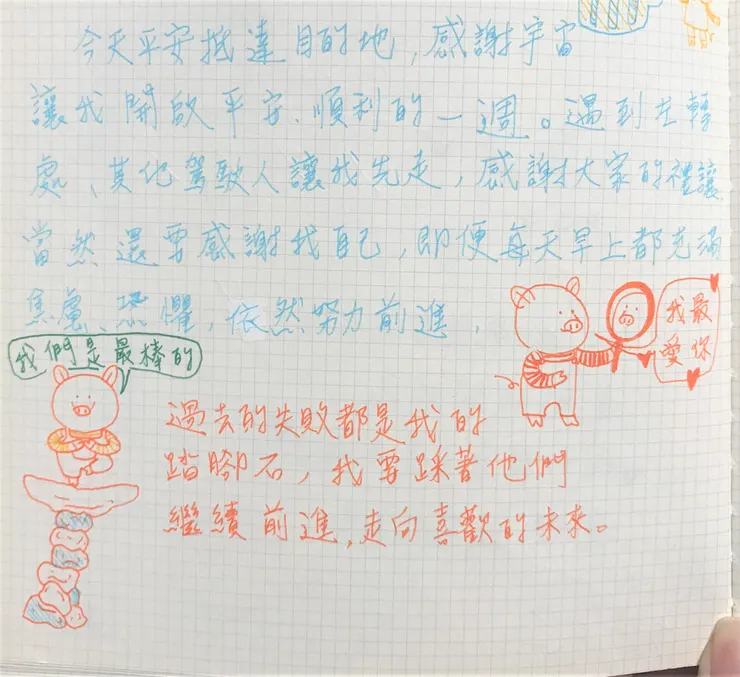 今天平安抵達目的地，感謝宇宙
讓我開啟平安、順利的一週。遇到左轉
處、其他駕駛人讓我先走，感謝大家的禮讓
當然還要感謝我自己，即便每天早上都充滿
焦慮、恐懼，依然努力前進，
我最
愛你
我們是最棒的
過去的失敗都是我的
踏腳石，我要踩著他們
繼續前進，走向喜歡的未來。